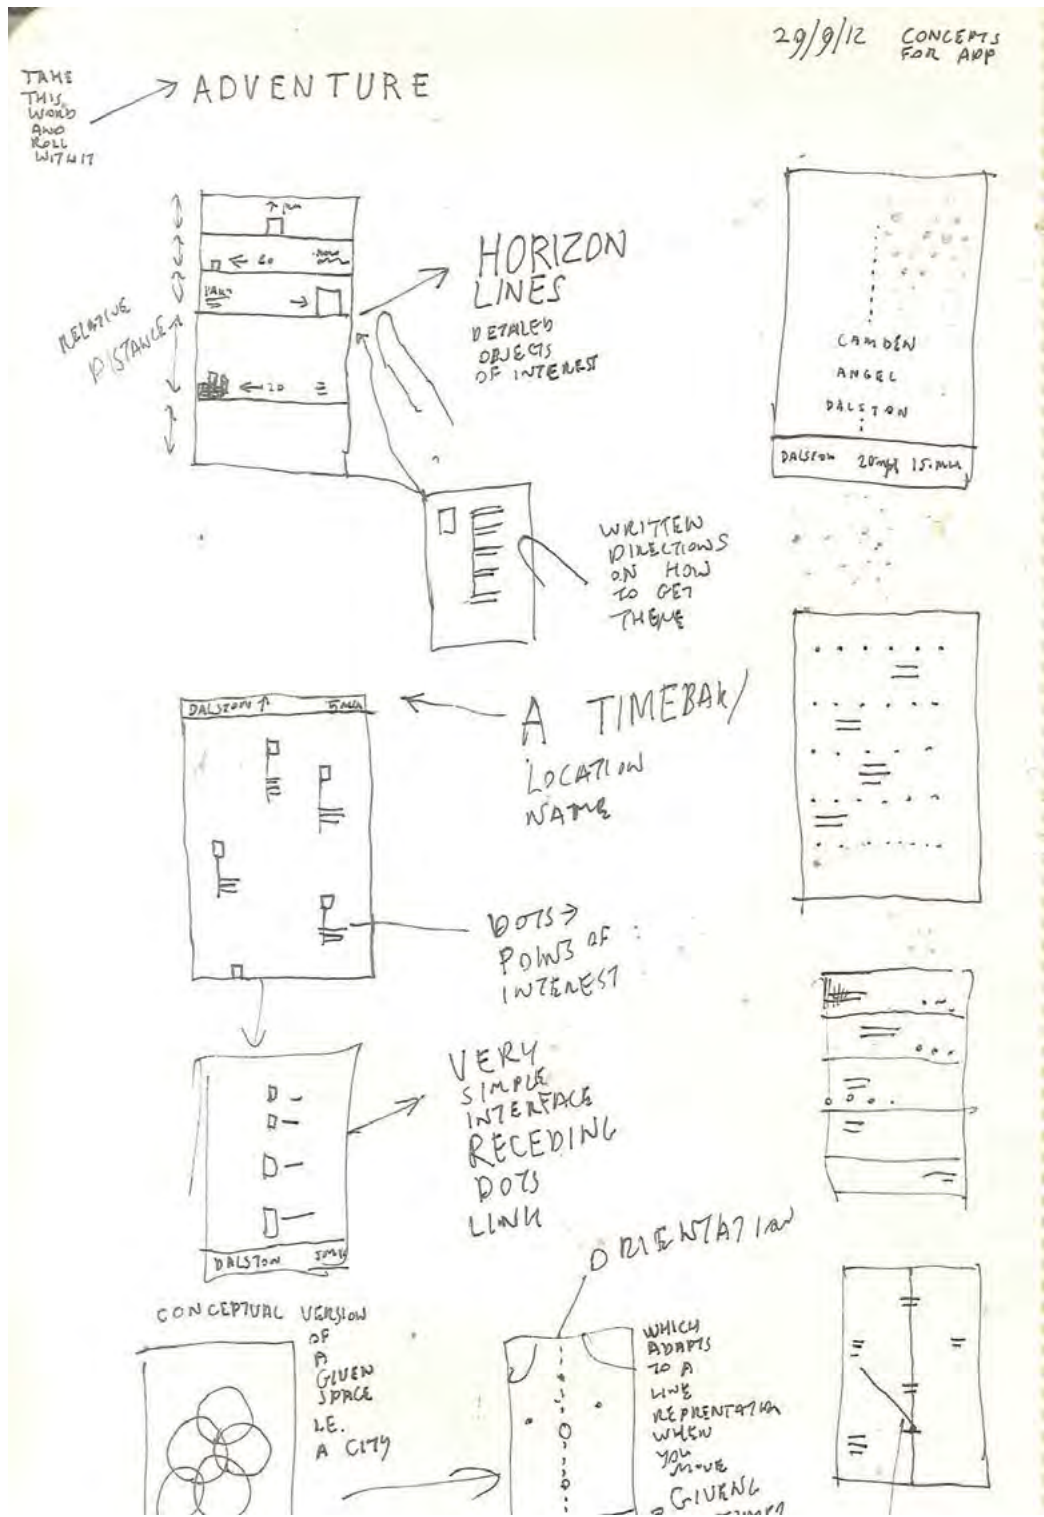 29/9/12 CONCEPTS
FOR APP
TAKE
THIS
WORD
AND
ROLL
WITH IT
ADVENTURE
← 60
RELATIVE
DISTANCE
← 20
HORIZON
LINES
DETAILED
OBJECTS
OF INTEREST
CAMDEN
ANGEL
DALSTON
DALSTON 20mph 15.MIN
WRITTEN
DIRECTIONS
ON HOW
TO GET
THERE
DALSTON ↑ 5MIN
A TIMEBAR/
LOCATION
NAME
DOTS →
POINTS OF
INTEREST
VERY
SIMPLE
INTERFACE
RECEDING
DOTS
LINK
DALSTON 5MIN
ORIENTATION
CONCEPTUAL VERSION
OF
A
GIVEN
SPACE
I.E.
A CITY
WHICH
ADAPTS
TO A
LINE
REPRENTATION
WHEN
YOU
MOVE
GIVENG